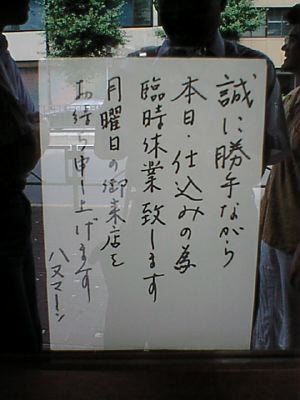 誠に勝手ながら
本日・仕込みの為
臨時休業致します
月曜日の御来店を
お待ち申し上げます
八叉マーシ